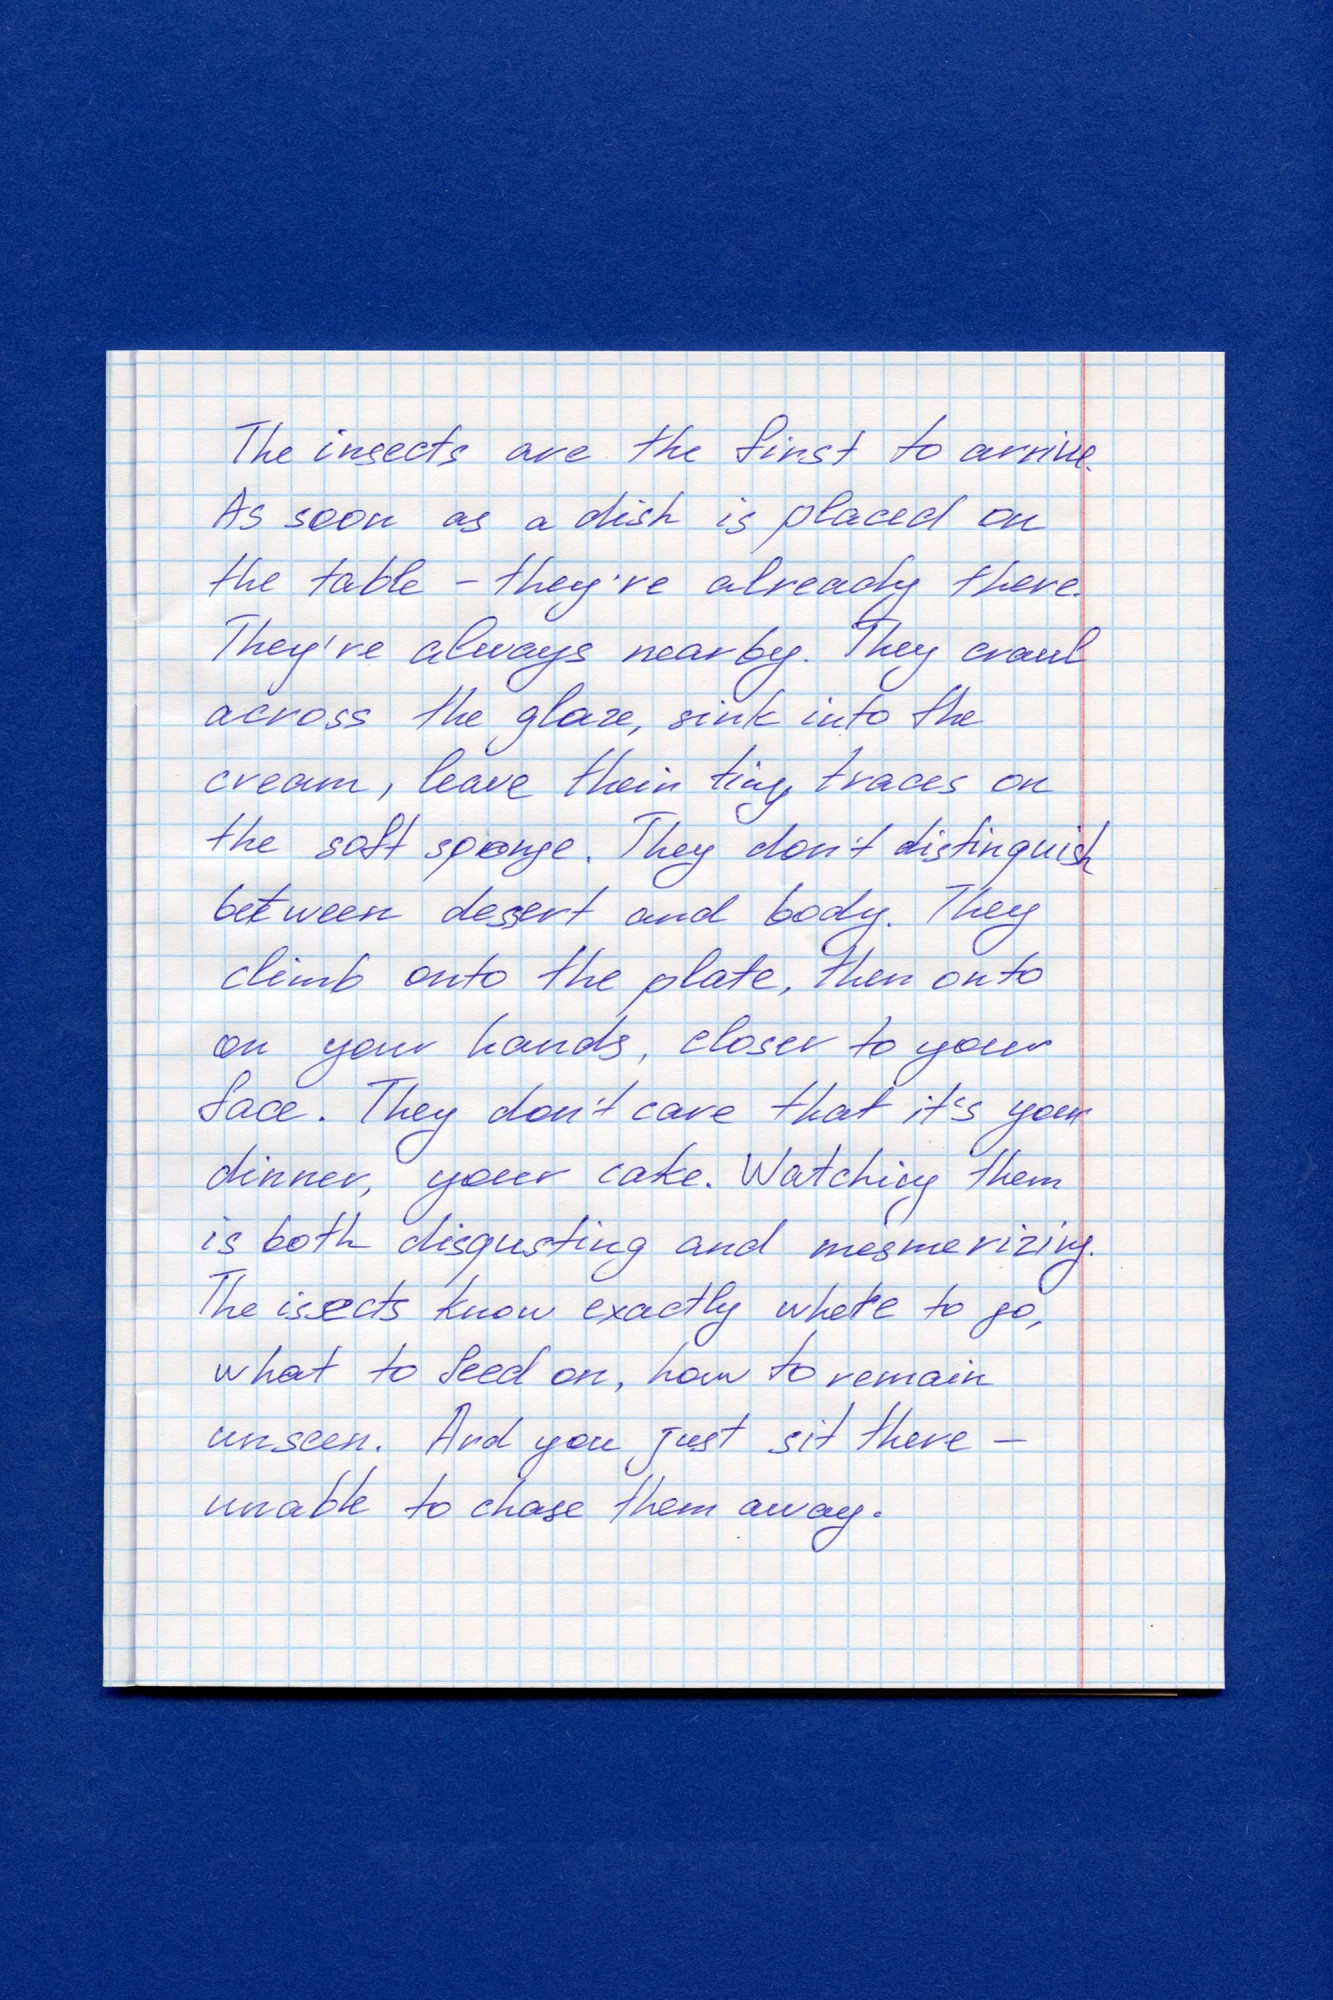 The insects are the first to arrive.
As soon as a dish is placed on
the table – they're already there.
They're always nearby. They crawl
across the glaze, sink into the
cream, leave their tiny traces on
the soft sponge. They don't distinguish
between desert and body. They
climb onto the plate, then onto
on your hands, closer to your
face. They don't care that it's your
dinner, your cake. Watching them
is both disgusting and mesmerizing.
The issects know exactly where to go,
what to feed on, how to remain
unseen. And you just sit there –
unable to chase them away.